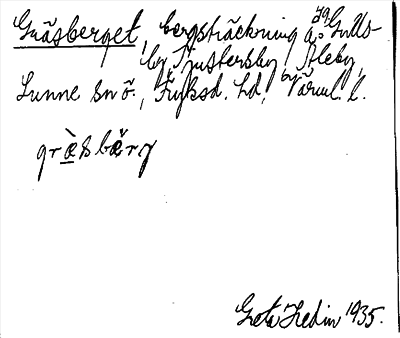 Gräsberget, bergsträckning å
by, Ljustersby, Åleby,
Sunne sn ö., Fryksd. hd, Värml. l.
græsbærγ
Greta Hedin 1935.